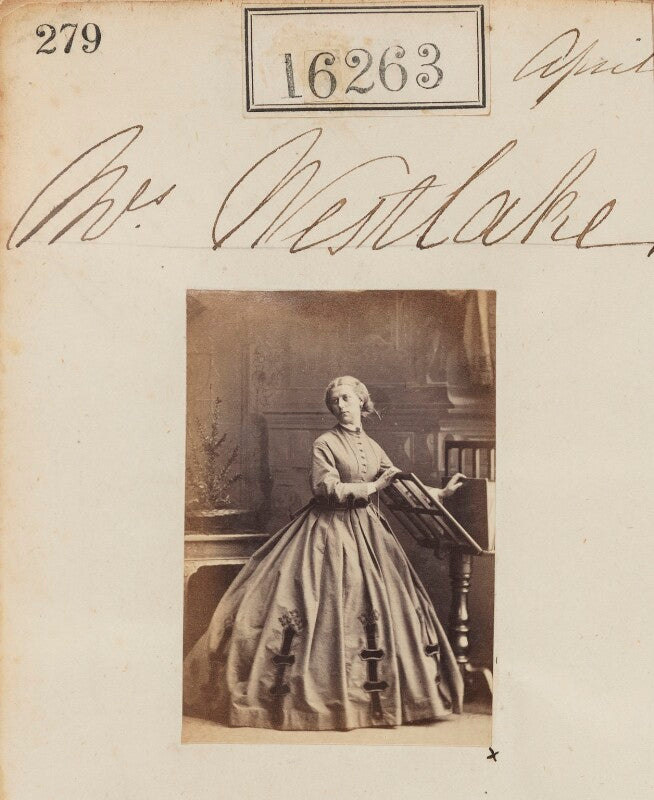 279
16263
April
Mrs. Westlake
x